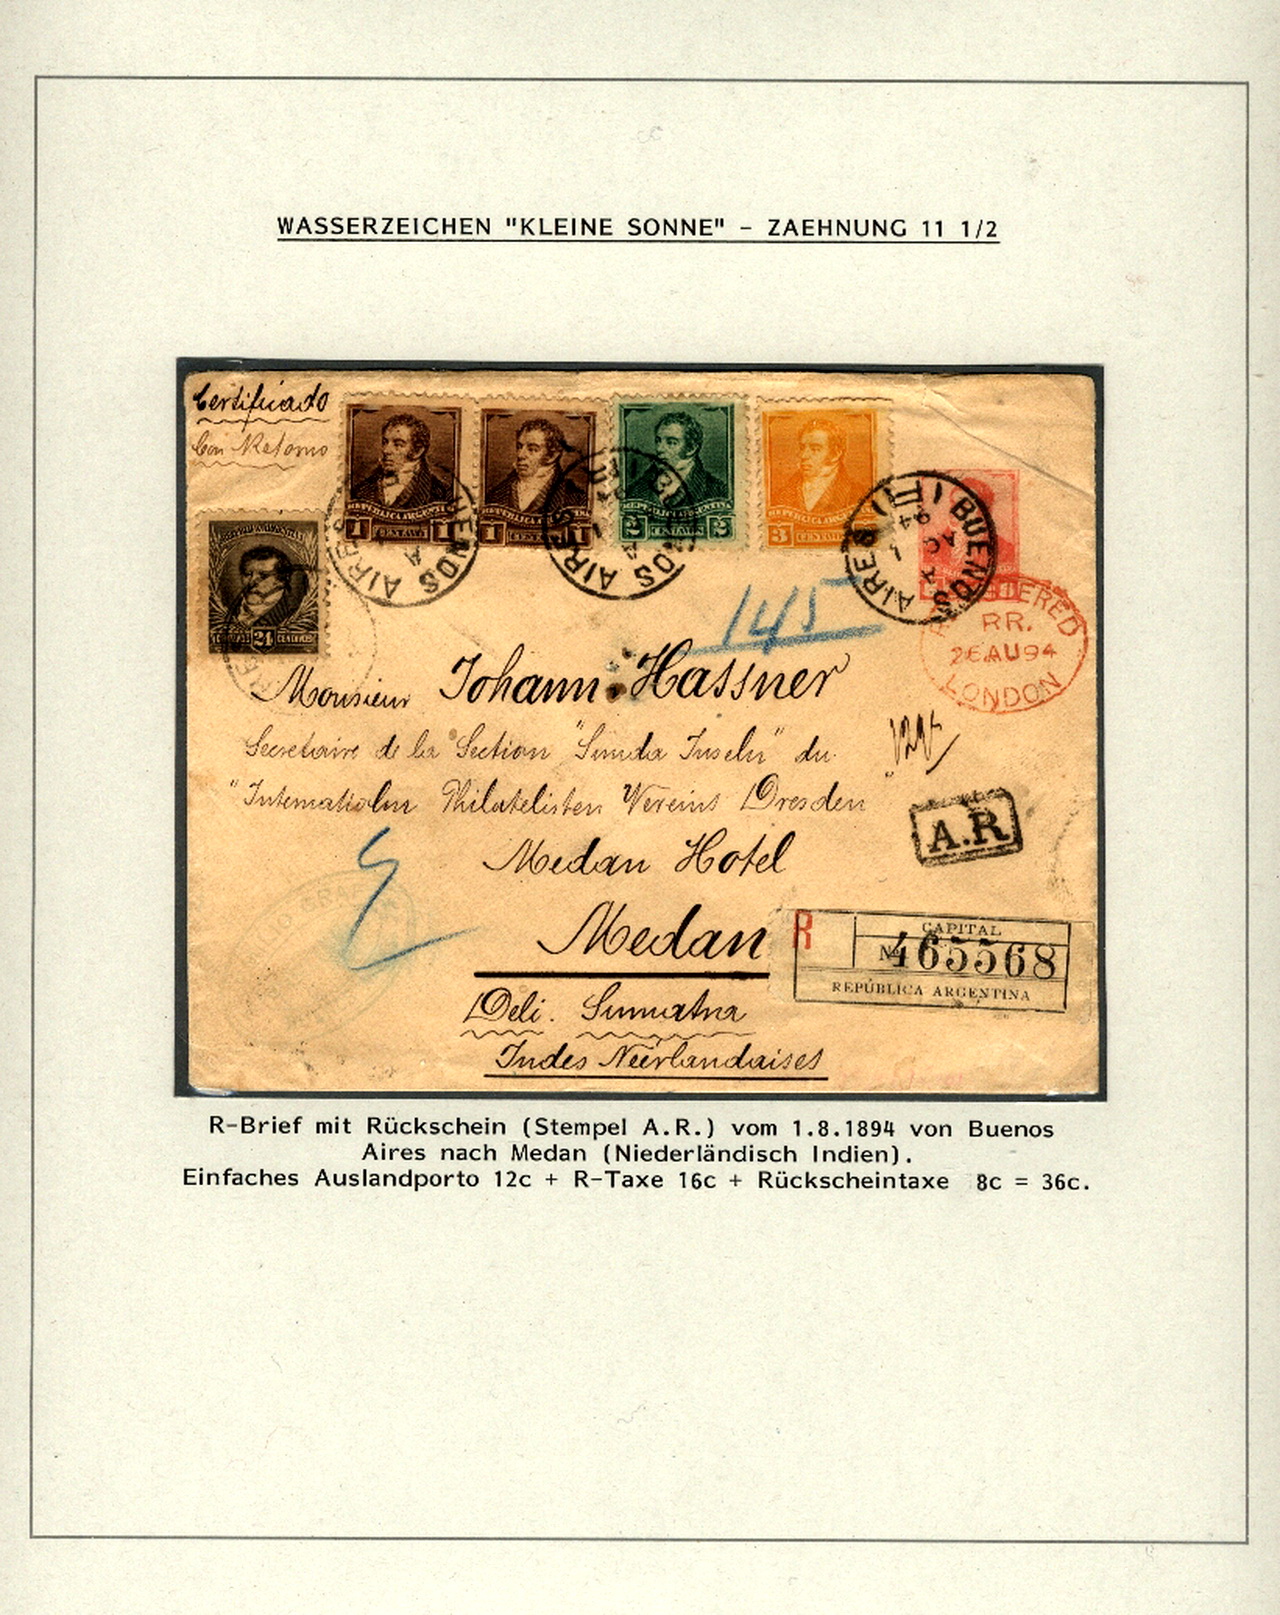 WASSERZEICHEN "KLEINE SONNE" - ZAEHNUNG 11 1/2
Certificado
Con Retorno
REPUBLICA ARGENTINA
1 CENTAVO 1
REPUBLICA ARGENTINA
1 CENTAVO 1
REPUBLICA ARGENTINA
2 CENTAVOS 2
REPUBLICA ARGENTINA
3 CENTAVOS
24
BUENOS AIRES
BUENOS AIRES
BUENOS AIRES
AG
1
94
145
REGISTERED
RR.
26 AU 94
LONDON
Monsieur Johann Hassner
Secretaire de la Section "Sunda Inseln" du
"Internationalen Philatelisten Vereins Dresden"
A.R
Medan Hotel
Medan
R
CAPITAL
Nº 465568
REPÚBLICA ARGENTINA
Deli. Sumatra
Indes Néerlandaises
R-Brief mit Rückschein (Stempel A.R.) vom 1.8.1894 von Buenos
Aires nach Medan (Niederländisch Indien).
Einfaches Auslandporto 12c + R-Taxe 16c + Rückscheintaxe 8c = 36c.